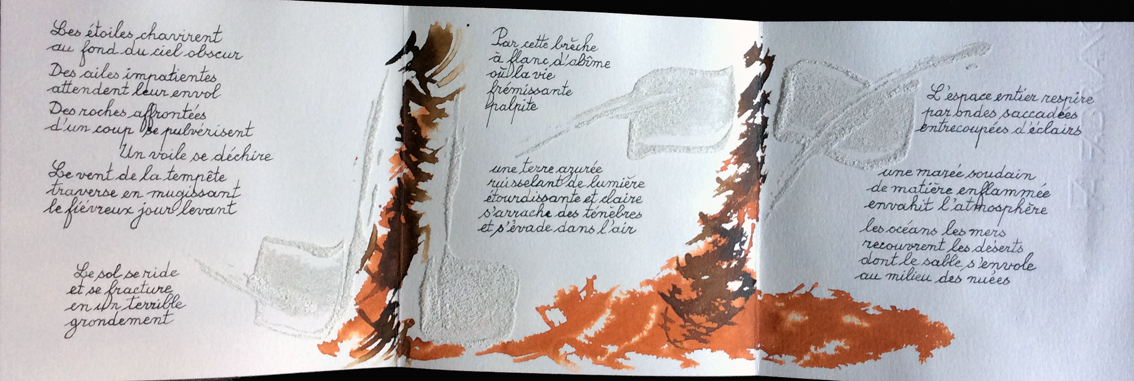 Les étoiles chavirent
au fond du ciel obscur
Des ailes impatientes
attendent leur envol
Des roches affrontées
d'un coup se pulvérisent
Un voile se déchire
Le vent de la tempête
traverse en mugissant
le fiévreux jour levant
Le sol se ride
et se fracture
en un terrible
grondement
Par cette brêche
à flanc d'abîme
où la vie
frémissante
palpite
une terre azurée
ruisselant de lumière
étourdissante et claire
s'arrache des ténèbres
et s'évade dans l'air
L'espace entier respire
par ondes saccadées
entrecoupées d'éclairs
une marée soudain
de matière enflammée
envahit l'atmosphère
les océans les mers
recouvrent les déserts
dont le sable s'envole
au milieu des nuées